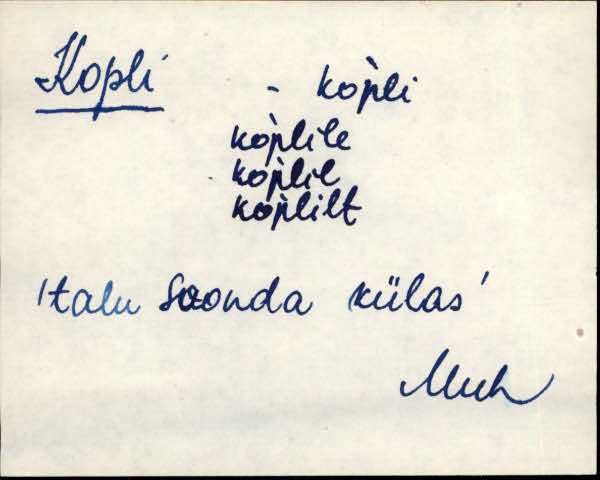 Kopli - kòp̀li
kòp̀lile
kòp̀lil
kòp̀lilt
'talu Soonda külas'
Muh